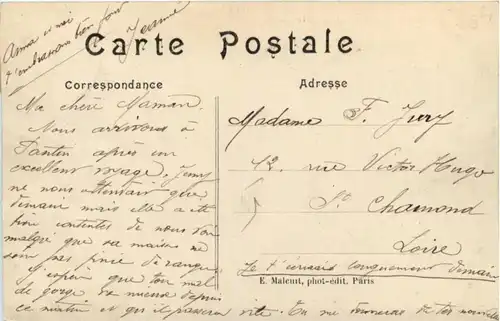 Anna et moi
t'embrassons bien fort
Jeanne
Carte Postale
Correspondance
Adresse
Ma chère Maman.
Nous arrivons à
Pantin après un
excellent voyage. Jenny
ne nous attendait que
demain mais elle a été
bien contente de nous voir
malgré que sa maison ne
soit pas
J'espère que ton mal
de gorge va mieux depuis
ce matin et qu'il passera vite. Tu me donneras de tes nouvelles
Madame F. Jury
12. rue Victor Hugo
St Chamond
Loire
Je t'écrirai longuement demain
E. Malcuit, phot-édit. Pâris